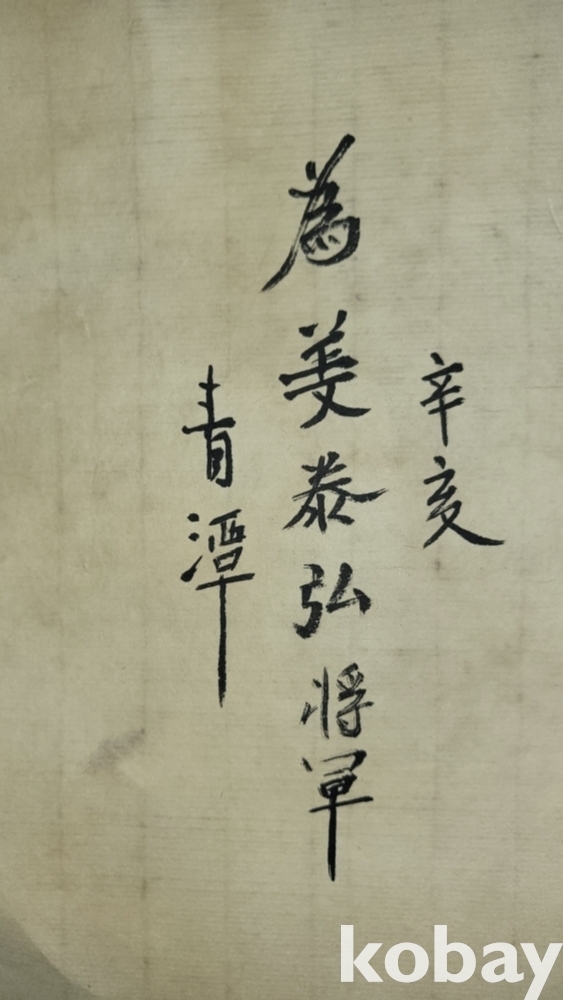 辛亥
為姜泰弘將軍
青潭
kobay